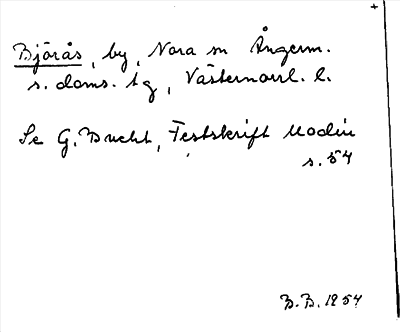 Björås, by, Nora sn Ångerm.
s. doms. tg, Västernorrl. l.
Se G. Bucht, Festskrift Modin
s. 54
B.B. 1954